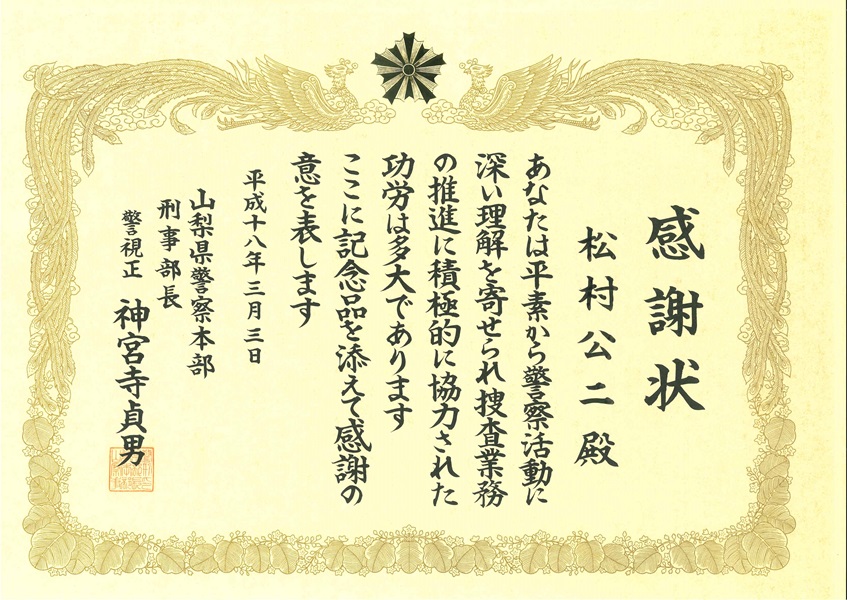 感謝状
松村公二殿
あなたは平素から警察活動に
深い理解を寄せられ捜査業務
の推進に積極的に協力された
功労は多大であります
ここに記念品を添えて感謝の
意を表します
平成十八年三月三日
山梨県警察本部
刑事部長
警視正 神宮寺貞男